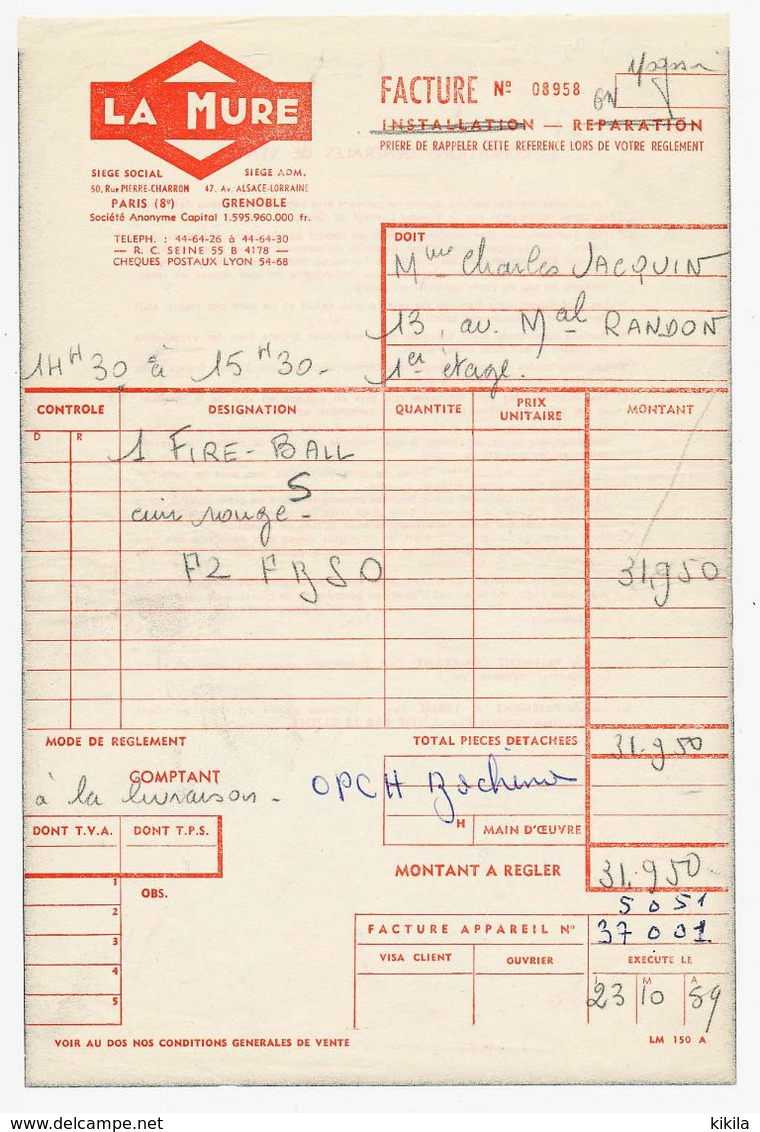 LA MURE
SIEGE SOCIAL SIEGE ADM.
50, Rue PIERRE-CHARRON 47, Av. ALSACE-LORRAINE
PARIS (8e) GRENOBLE
Société Anonyme Capital 1.595.960.000 fr.
TELEPH. : 44-64-26 à 44-64-30
— R. C. SEINE 55 B 4178 —
CHEQUES POSTAUX LYON 54-68
FACTURE No 08958
INSTALLATION — REPARATION
PRIERE DE RAPPELER CETTE REFERENCE LORS DE VOTRE REGLEMENT
DOIT
Mme Charles JACQUIN
13, av. Mal RANDON
1er étage.
14H30 à 15H30-
CONTROLE DESIGNATION QUANTITE PRIX UNITAIRE MONTANT
D R
1 FIRE-BALL
S
cuir rouge -
F2 FBSO 31,950
MODE DE REGLEMENT TOTAL PIECES DETACHEES 31.950
COMPTANT
à la livraison - OPCH
H MAIN D'ŒUVRE
DONT T.V.A. DONT T.P.S.
MONTANT A REGLER 31.950
1
OBS.
5051
2
FACTURE APPAREIL No 37001
3
VISA CLIENT OUVRIER EXECUTE LE
4
J M A
23 10 59
5
VOIR AU DOS NOS CONDITIONS GENERALES DE VENTE LM 150 A
kikila